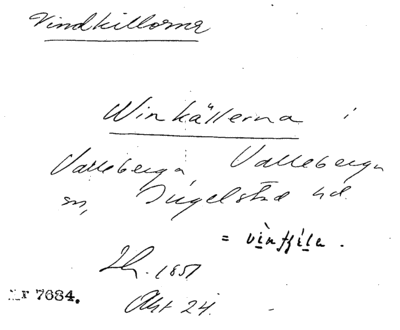 Vindkillorna
Winkällerna i
Valleberga, Valleberga
sn, Ingelstad hd.
= 
Lh. 1851
Akt 24.
Nr 7684.